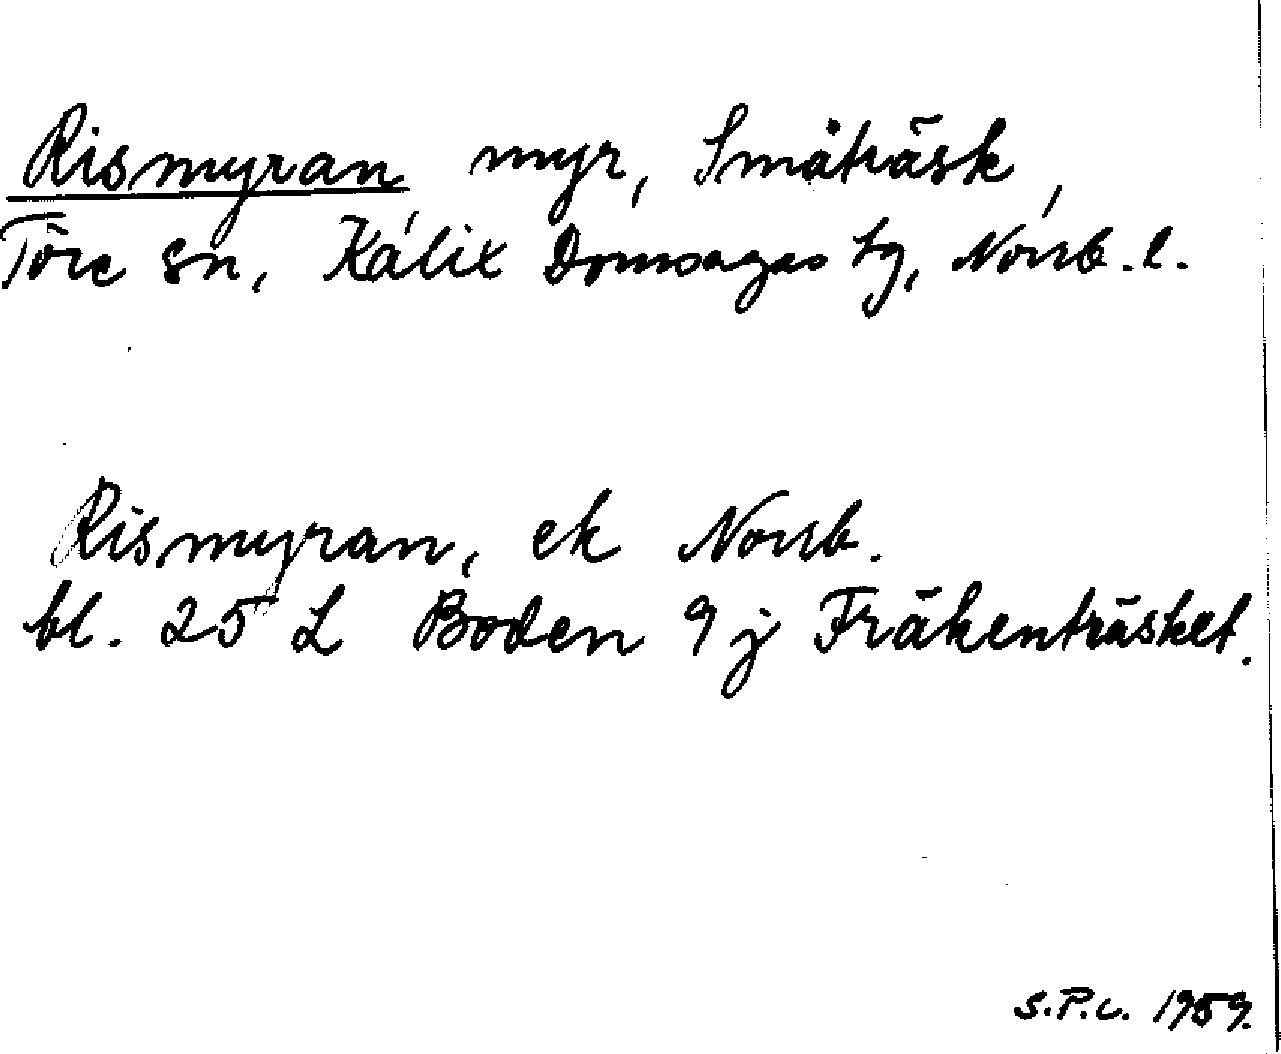 Rismyran myr, Småträsk,
Töre sn, Kalix Domsagas tg, Norrb. l.
Rismyran, ek Norrb.
bl. 25 L Boden 9 j Fräkenträsket.
S.P.U. 1959.